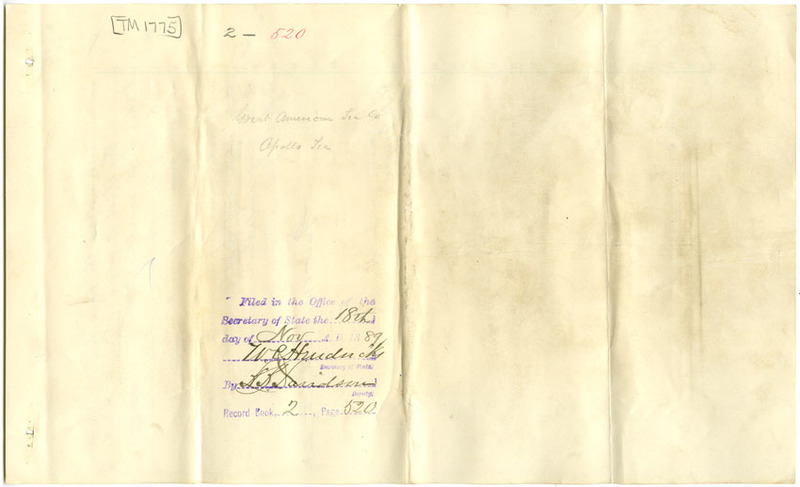 [TM 1775]
2 - 520
Great American Tea Co
Apollo Tea
Filed in the Office of the
Secretary of State the 18th
day of Nov A.D. 1889
W C Hendricks
Secretary of State.
By Davidson
Deputy.
Record Book, 2, Page 520